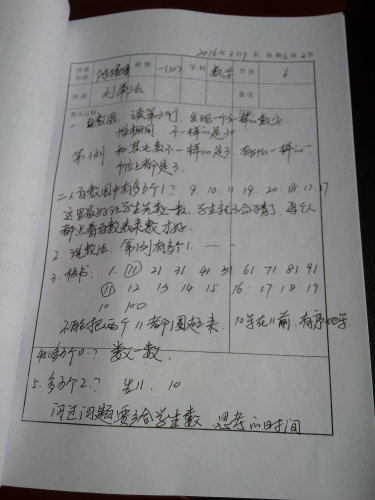 2016年3月9日 星期三 第2节
授课教师 班级 一(10) 学科 数学 节次 6
课题 列举法 备注
教学过程
一、百数图. 读第3个 发现一个不一样的数字.
性相同. 不一样的是30
第3列 和其它数不一样的是3. 有什么一样的.
个位上都是3.
二、百数图中有多少个1? 9. 10. 11. 19. 20. 18. 12. 17
这里最好让学生先数一数, 学生就不会猜了, 每个人
都拿着百数表来数才好.
2. 说数法: 第1列有多少个1. 一 一
3. 板书: 1. 11 21 31 41 51 61 71 81 91
11 12 13 14 15 16 17 18 19
10 100
不能把两个11都圈起来. 10写在11前, 有序地写.
4. 多少个0? 数一数.
5. 多少个2? 生: 10
问过问题要给学生数、思考的时间